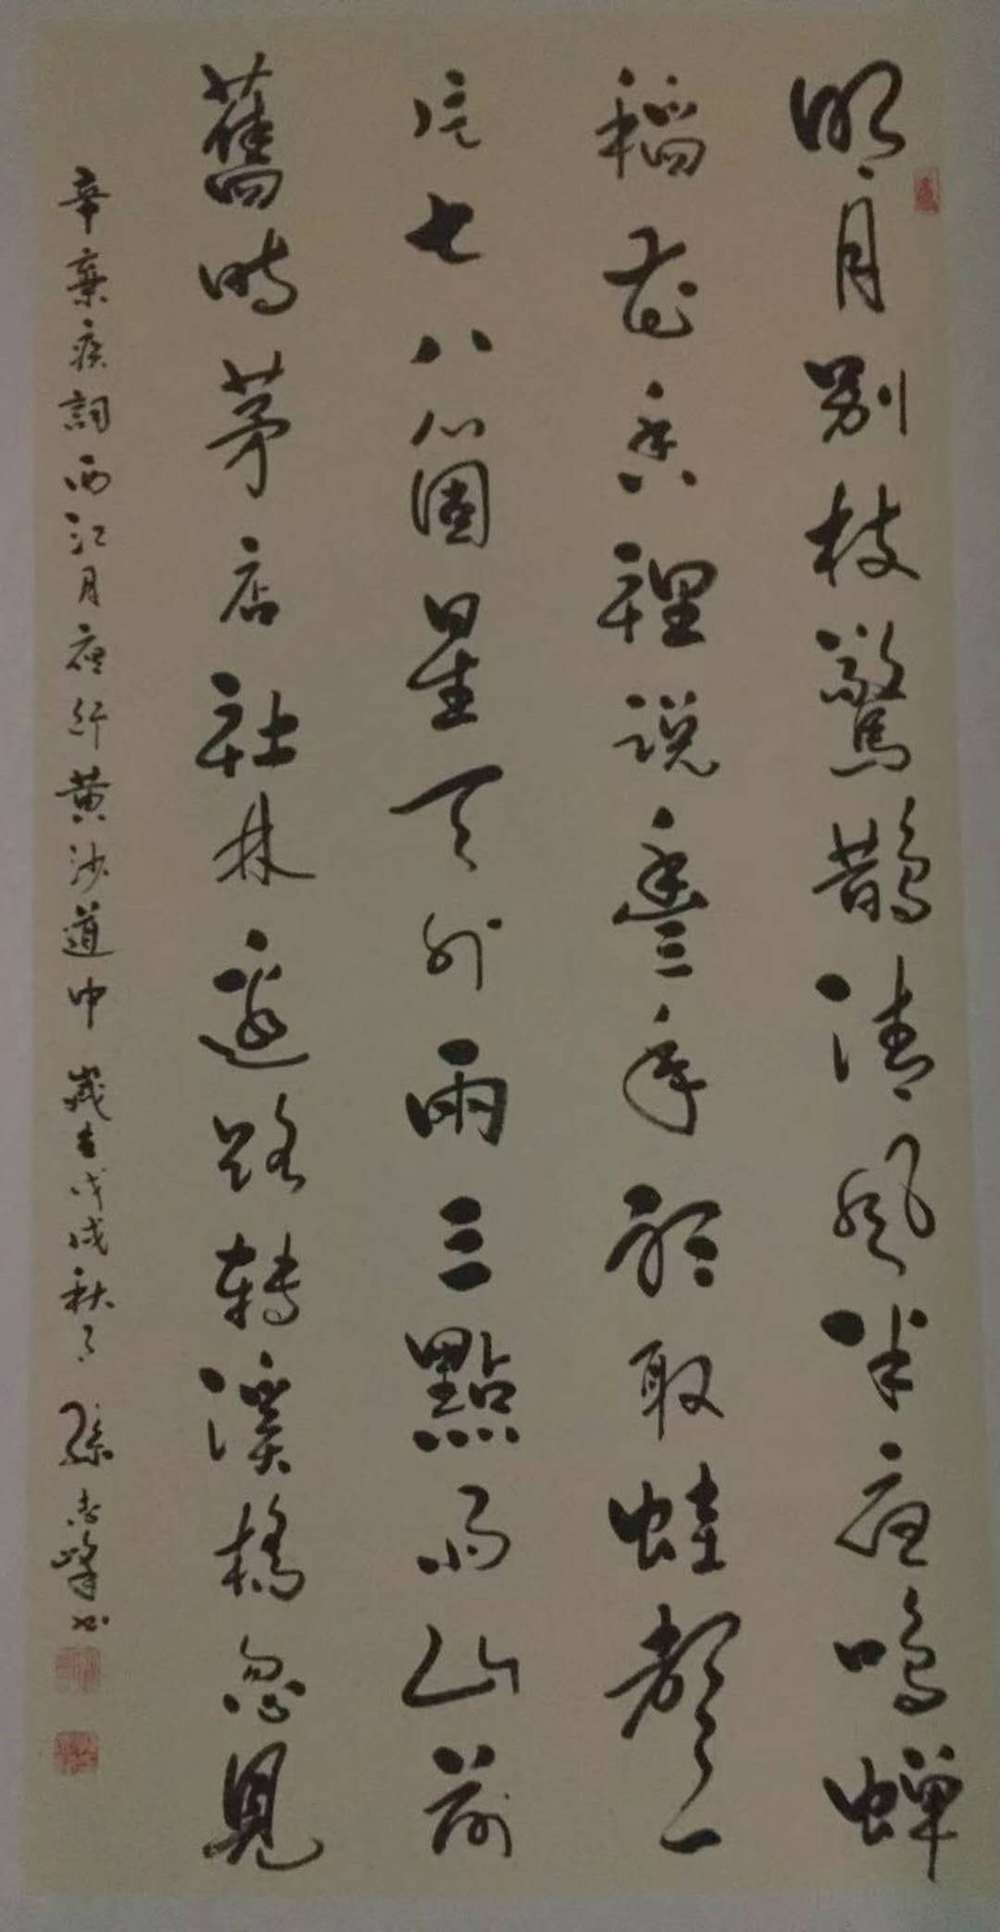 明月别枝驚鵲清风半夜鳴蝉
稻花香裡説豐年听取蛙聲一
片七八個星天外兩三點雨山前
舊時茅店社林邊路轉溪橋忽見
辛棄疾詞西江月夜行黄沙道中 歲在戊戌秋 孫志峰书